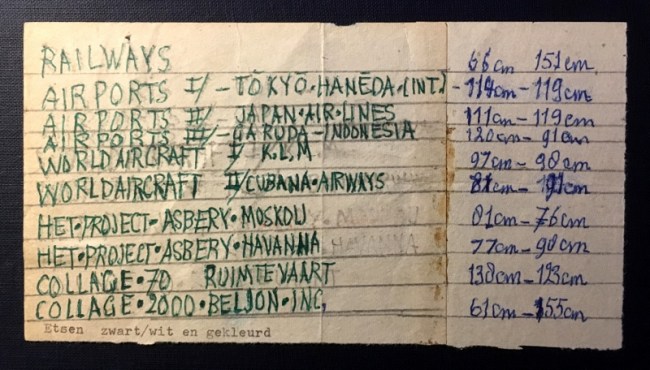 RAILWAYS 66cm 151cm
AIRPORTS I/ - TŌKYŌ•HANĒDA•(INT.) - 119cm - 119cm
AIRPORTS II/ - JAPAN•AIR•LINES 111cm - 119cm
AIRPORTS III/ - GARUDA - INDONESIA 120cm - 91cm
WORLDAIRCRAFT I/ K.L.M 97cm - 98cm
WORLDAIRCRAFT II/ CUBANA•AIRWAYS
HET•PROJECT•ASBERY•MOSKOU 81cm - 76cm
HET•PROJECT•ASBERY•HAVANNA 77cm - 98cm
COLLAGE•70 RUIMTEVAART 138cm - 123cm
COLLAGE•2000•BELJON•INC, 61cm - 155cm
Etsen zwart/wit en gekleurd